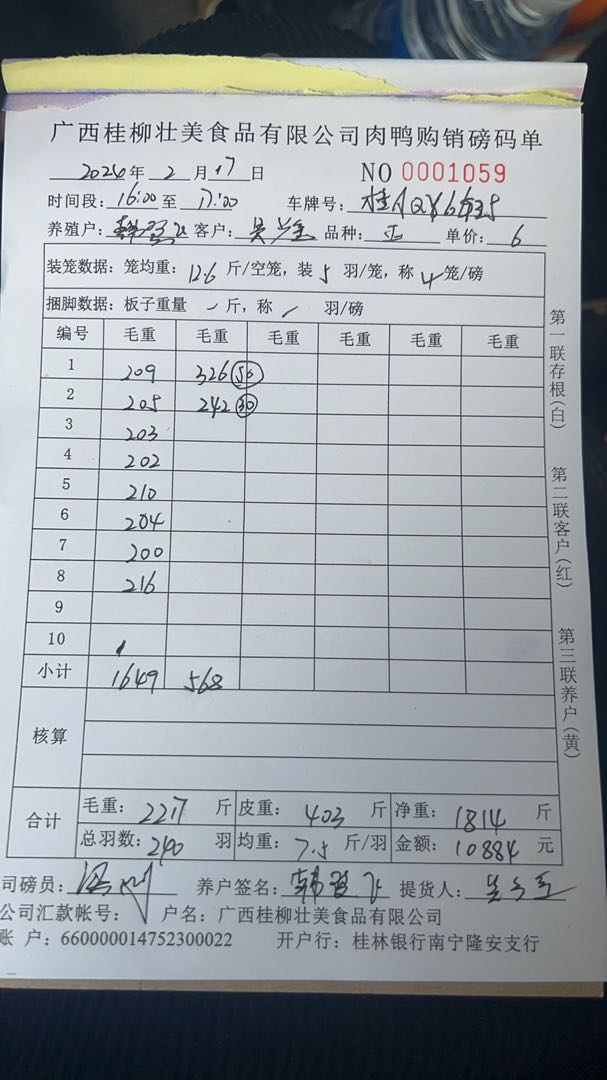 广西桂柳壮美食品有限公司肉鸭购销磅码单
2026年 2 月 17 日 NO 0001059
时间段: 16:00 至 17:00 车牌号: 桂A
养殖户: 韩 飞 客户: 吴 品种: 正 单价: 6
装笼数据: 笼均重: 12.6 斤/空笼, 装 5 羽/笼, 称 4 笼/磅
捆脚数据: 板子重量 斤, 称 羽/磅
编号 毛重 毛重 毛重 毛重 毛重 毛重
1 209 326 50
2 205 242 30
3 203
4 202
5 210
6 204
7 200
8 216
9
10
小计 1649 568
核算
合计 毛重: 2217 斤 皮重: 403 斤 净重: 1814 斤
总羽数: 240 羽 均重: 7.5 斤/羽 金额: 10884 元
司磅员: 养户签名: 韩 飞 提货人: 吴
公司汇款帐号: 户名: 广西桂柳壮美食品有限公司
账 户: 660000014752300022 开户行: 桂林银行南宁隆安支行
第一联存根(白)
第二联客户(红)
第三联养户(黄)